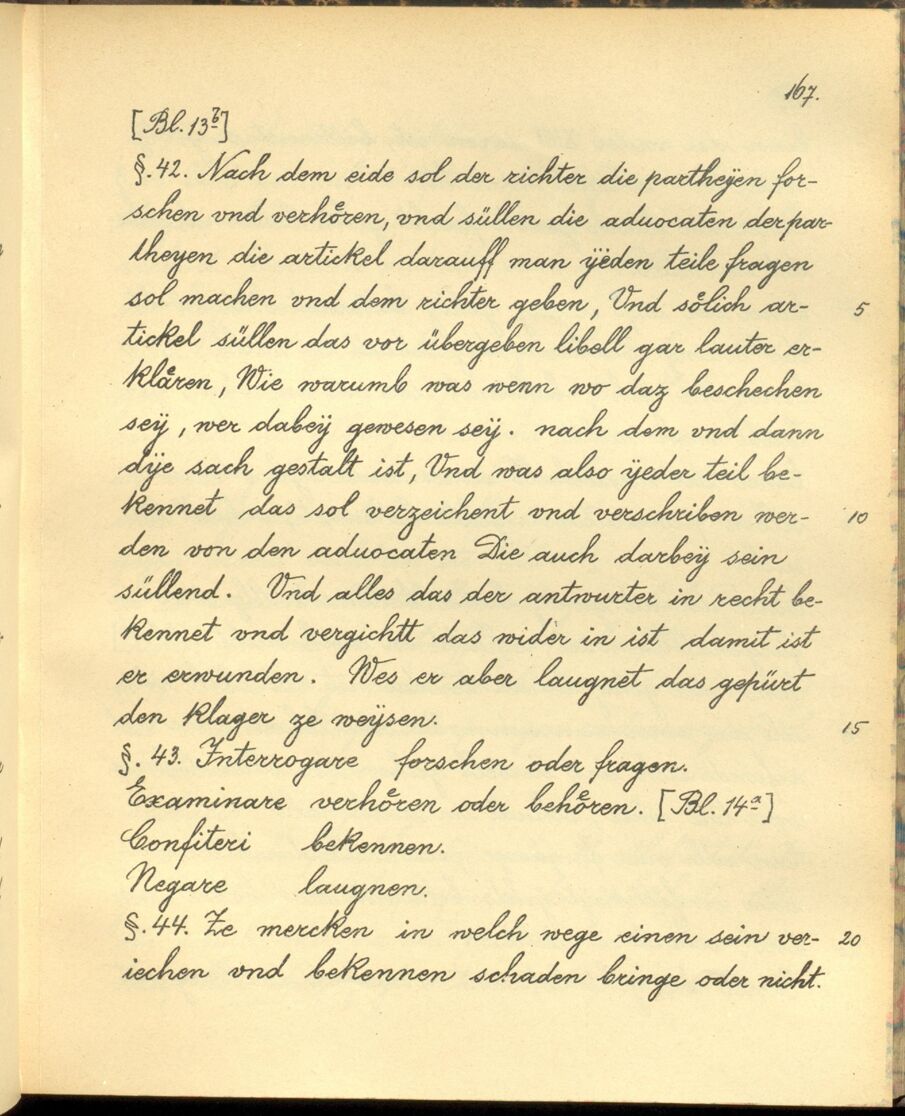 167.
[Bl. 13b]
§. 42. Nach dem eide sol der richter die partheÿen for-
schen vnd verhoͤren, vnd süllen die aduocaten der par-
theyen die artickel darauff man ÿeden teile fragen
sol machen vnd dem richter geben, Vnd soͤlich ar- 5
tickel süllen das vor übergeben libell gar lauter er-
klaͤren, Wie warumb was wenn wo daz beschechen
seÿ, wer dabeÿ gewesen seÿ. nach dem vnd dann
dÿe sach gestalt ist, Vnd was also ÿeder teil be-
kennet das sol verzeichent vnd verschriben wer- 10
den von den aduocaten Die auch darbeÿ sein
süllend. Vnd alles das der antwurter in recht be-
kennet vnd vergichtt das wider in ist damit ist
er erwunden. Wes er aber laugnet das gepürt
den klager ze weÿsen. 15
§. 43. Interrogare forschen oder fragen.
Examinare verhoͤren oder behoͤren. [Bl. 14a]
Confiteri bekennen.
Negare laugnen.
§. 44. Ze mercken in welch wege einen sein ver- 20
iechen vnd bekennen schaden bringe oder nicht.